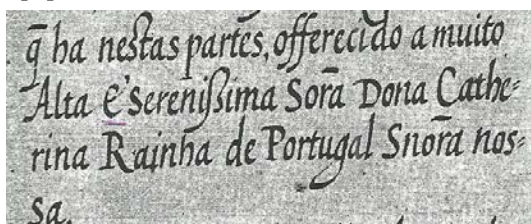 q̃ ha nestas partes, offerecido a muito
Alta e' Sereniſsima Sorã Dona Cathe=
rina Rainha de Portugal Snorã nos=
sa.